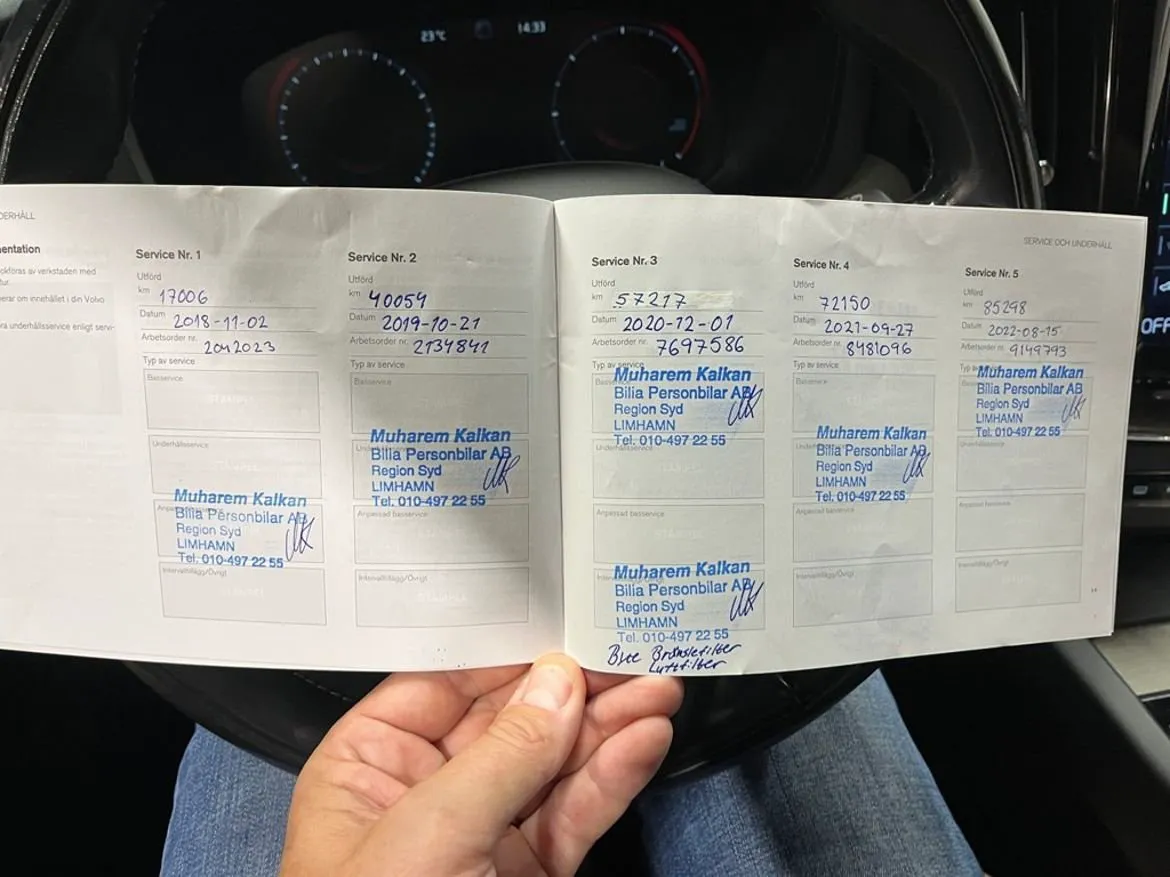 23°C
14.33
DERHÅLL
entation
ckföras av verkstaden med
tur.
erar om innehållet i din Volvo
ra underhållsservice enligt servi-
Service Nr. 1
Utförd
km 17006
Datum 2018-11-02
Arbetsorder nr. 2042023
Typ av service
Basservice
Underhållsservice
Muharem Kalkan
Bilia Personbilar AB
Region Syd
LIMHAMN
Tel. 010-497 22 55
Intervalltillägg/Övrigt
Service Nr. 2
Utförd
km 40054
Datum 2019-10-21
Arbetsorder nr. 2134841
Typ av service
Basservice
Muharem Kalkan
Bilia Personbilar AB
Region Syd
LIMHAMN
Tel. 010-497 22 55
Anpassad basservice
Intervalltillägg/Övrigt
SERVICE OCH UNDERHÅLL
Service Nr. 3
Utförd
km 57217
Datum 2020-12-01
Arbetsorder nr. 7697586
Typ av service
Muharem Kalkan
Bilia Personbilar AB
Region Syd
LIMHAMN
Tel. 010-497 22 55
Underhållsservice
Anpassad basservice
Muharem Kalkan
Bilia Personbilar AB
Region Syd
LIMHAMN
Tel. 010-497 22 55
Bränslefilter
Luftfilter
Service Nr. 4
Utförd
km 72150
Datum 2021-09-27
Arbetsorder nr. 8481096
Typ av service
Basservice
Muharem Kalkan
Bilia Personbilar AB
Region Syd
LIMHAMN
Tel. 010-497 22 55
Anpassad basservice
Intervalltillägg/Övrigt
Service Nr. 5
Utförd
km 85298
Datum 2022-08-15
Arbetsorder nr. 9149793
Muharem Kalkan
Bilia Personbilar AB
Region Syd
LIMHAMN
Tel. 010-497 22 55
Underhållsservice
Anpassad basservice
Intervalltillägg/Övrigt
OFF